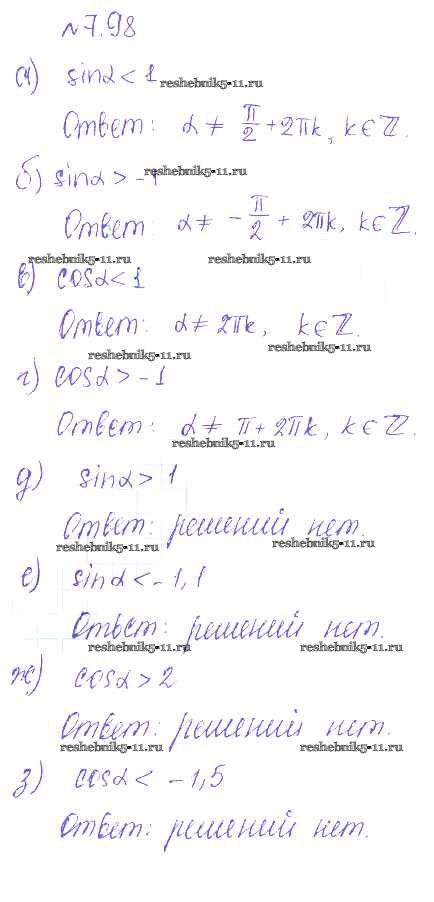 №7.98
а) sinα < 1
reshebnik5-11.ru
Ответ: α ≠ π/2 + 2πk, k ∈ ℤ.
б) sinα > -1
reshebnik5-11.ru
Ответ: α ≠ -π/2 + 2πk, k ∈ ℤ.
reshebnik5-11.ru reshebnik5-11.ru
в) cosα < 1
Ответ: α ≠ 2πk, k ∈ ℤ.
reshebnik5-11.ru reshebnik5-11.ru
г) cosα > -1
Ответ: α ≠ π + 2πk, k ∈ ℤ.
reshebnik5-11.ru
д) sinα > 1
Ответ: решений нет.
reshebnik5-11.ru reshebnik5-11.ru
е) sinα < -1,1
Ответ: решений нет.
reshebnik5-11.ru reshebnik5-11.ru
ж) cosα > 2
Ответ: решений нет.
reshebnik5-11.ru reshebnik5-11.ru
з) cosα < -1,5
Ответ: решений нет.